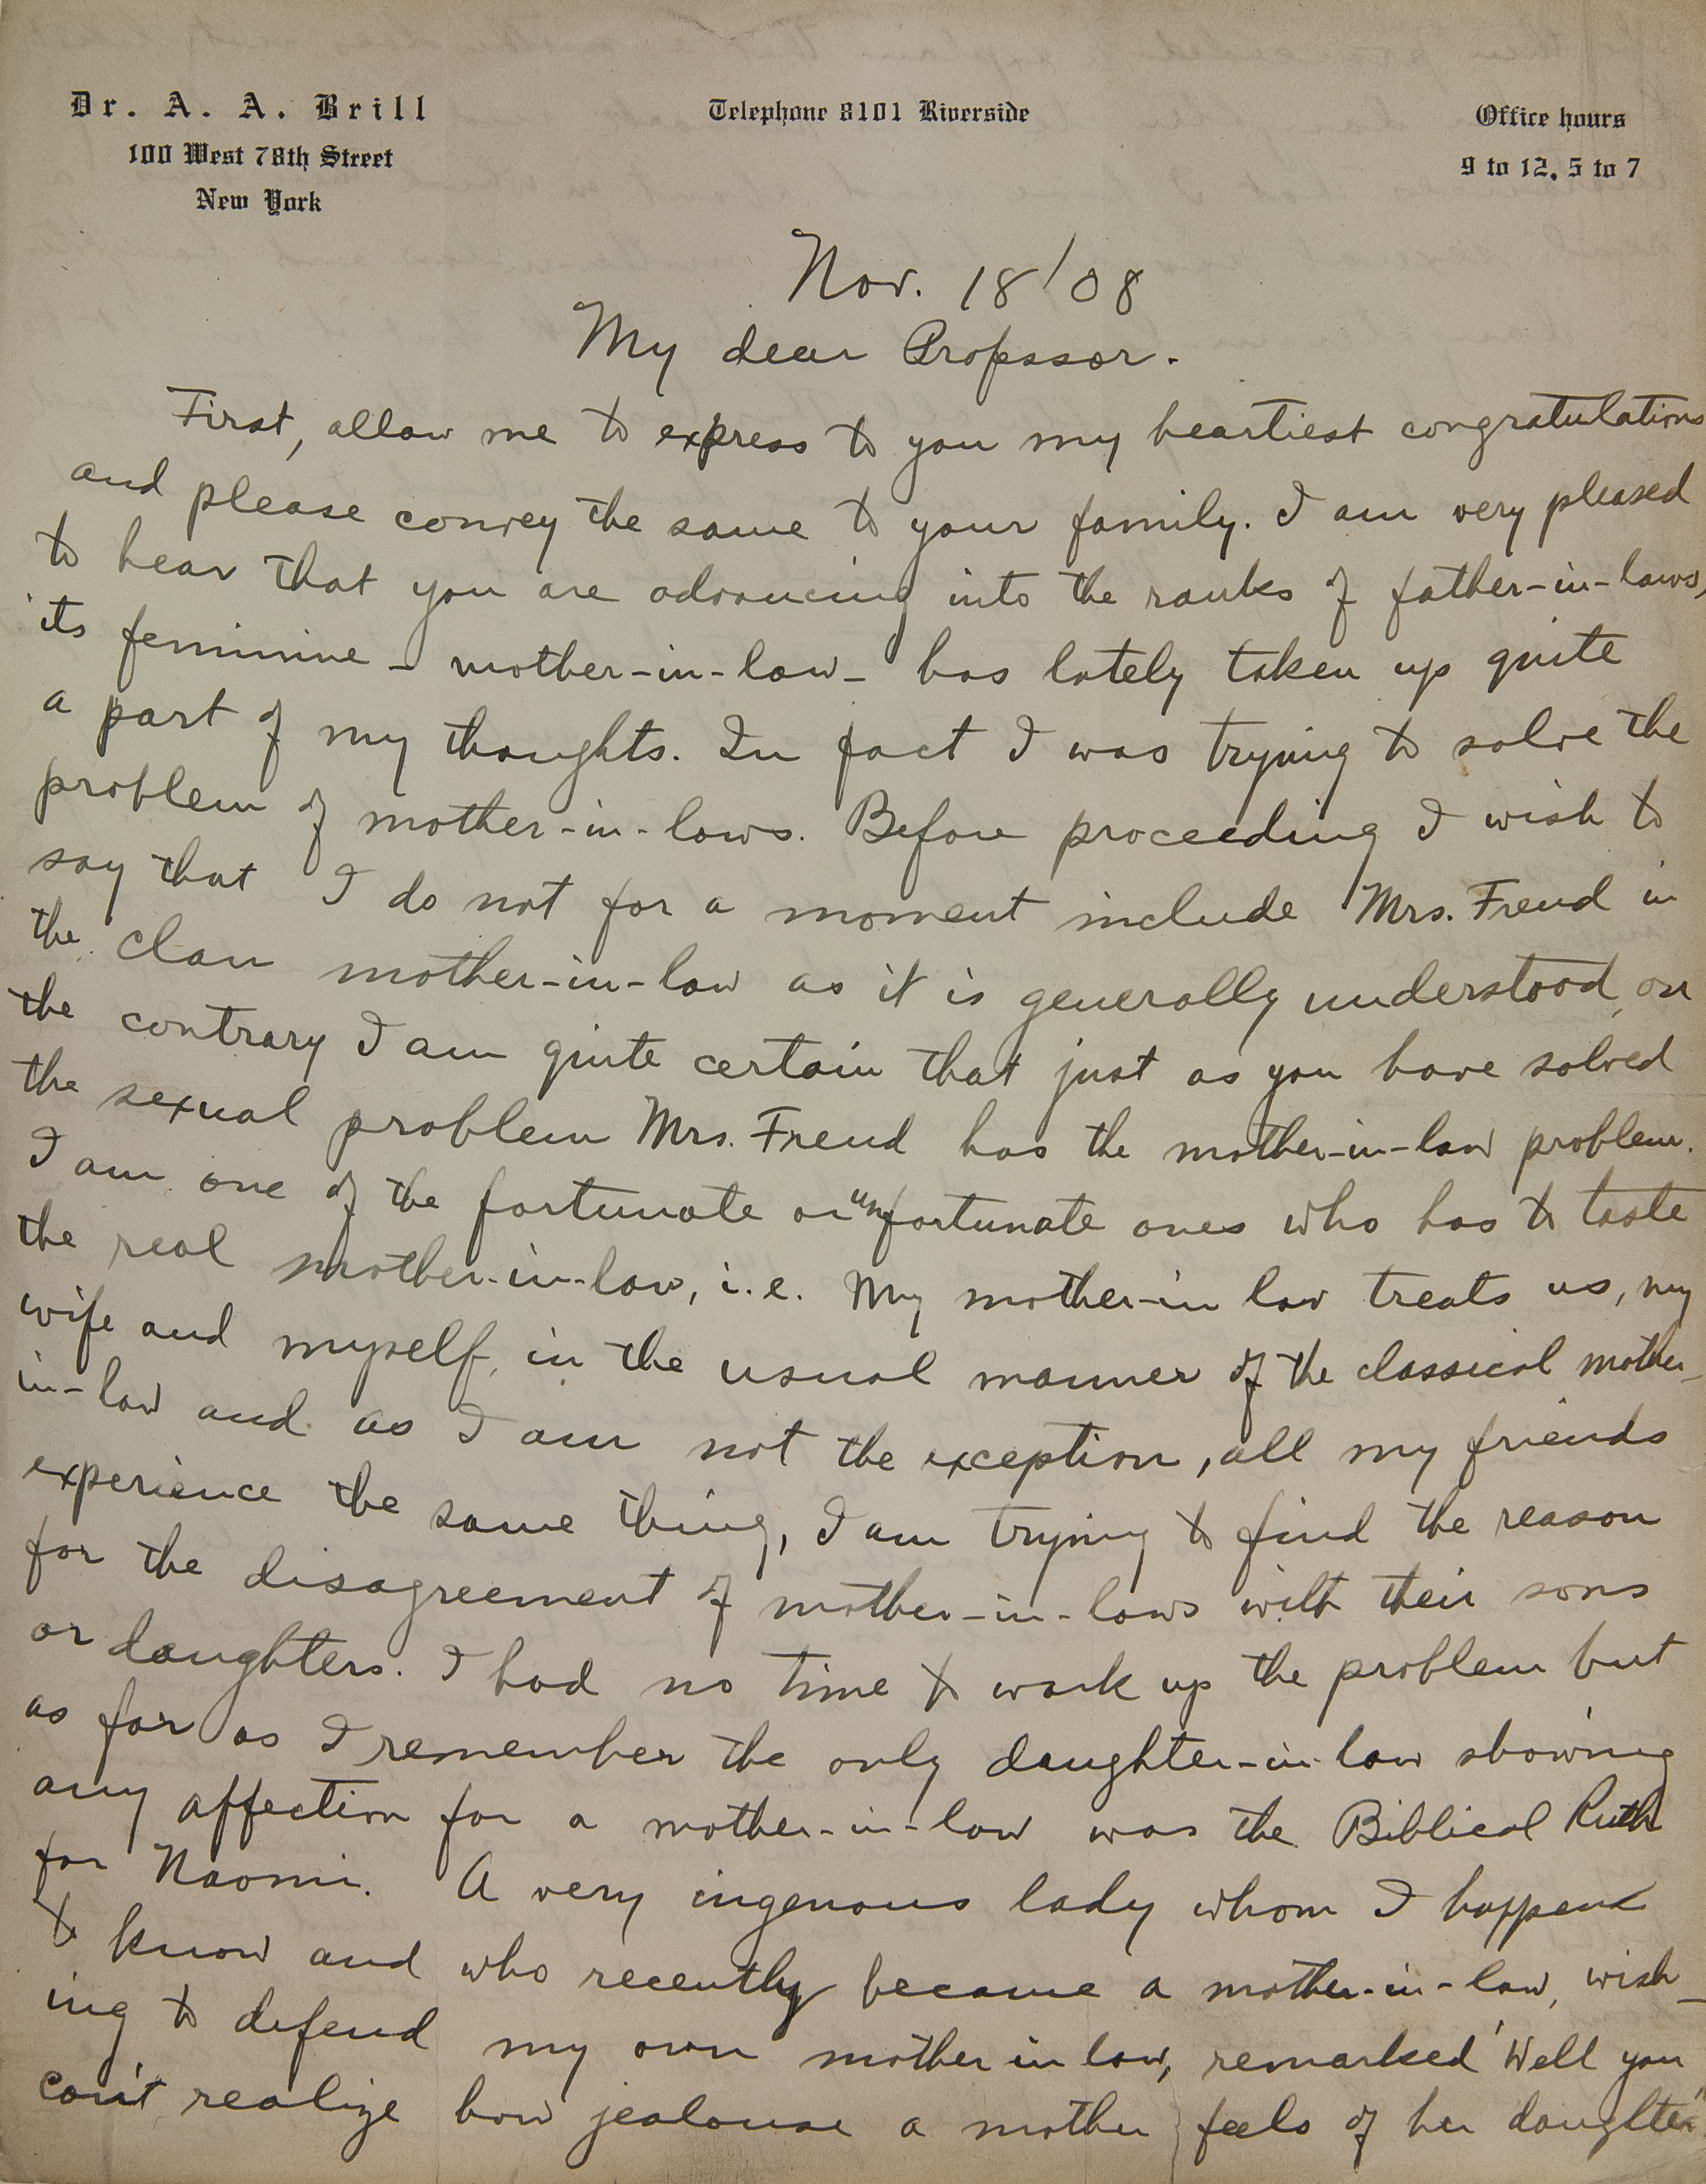 Dr. A. A. Brill
100 West 78th Street
New York
Telephone 8101 Riverside
Office hours
9 to 12, 5 to 7
Nov. 18/08
My dear Professor.
First, allow me to express to you my heartiest congratulations
and please convey the same to your family. I am very pleased
to hear that you are advancing into the ranks of father-in-laws,
its feminine - mother-in-law - has lately taken up quite
a part of my thoughts. In fact I was trying to solve the
problem of mother-in-laws. Before proceeding I wish to
say that I do not for a moment include Mrs. Freud in
the clan mother-in-law as it is generally understood, on
the contrary I am quite certain that just as you have solved
the sexual problem Mrs. Freud has the mother-in-law problem.
I am one of the fortunate or unfortunate ones who has to taste
the real mother-in-law, i.e. My mother-in law treats us, my
wife and myself, in the usual manner of the classical mother-
in-law and as I am not the exception, all my friends
experience the same thing, I am trying to find the reason
for the disagreement of mother-in-laws with their sons
or daughters. I had no time to work up the problem but
as far as I remember the only daughter-in-law showing
any affection for a mother-in-law was the Biblical Ruth
for Naomi. A very ingenous lady whom I happend
to know and who recently became a mother-in-law, wish-
ing to defend my own mother in law, remarked 'Well you
can't realize how jealouse a mother feels of her daughter"